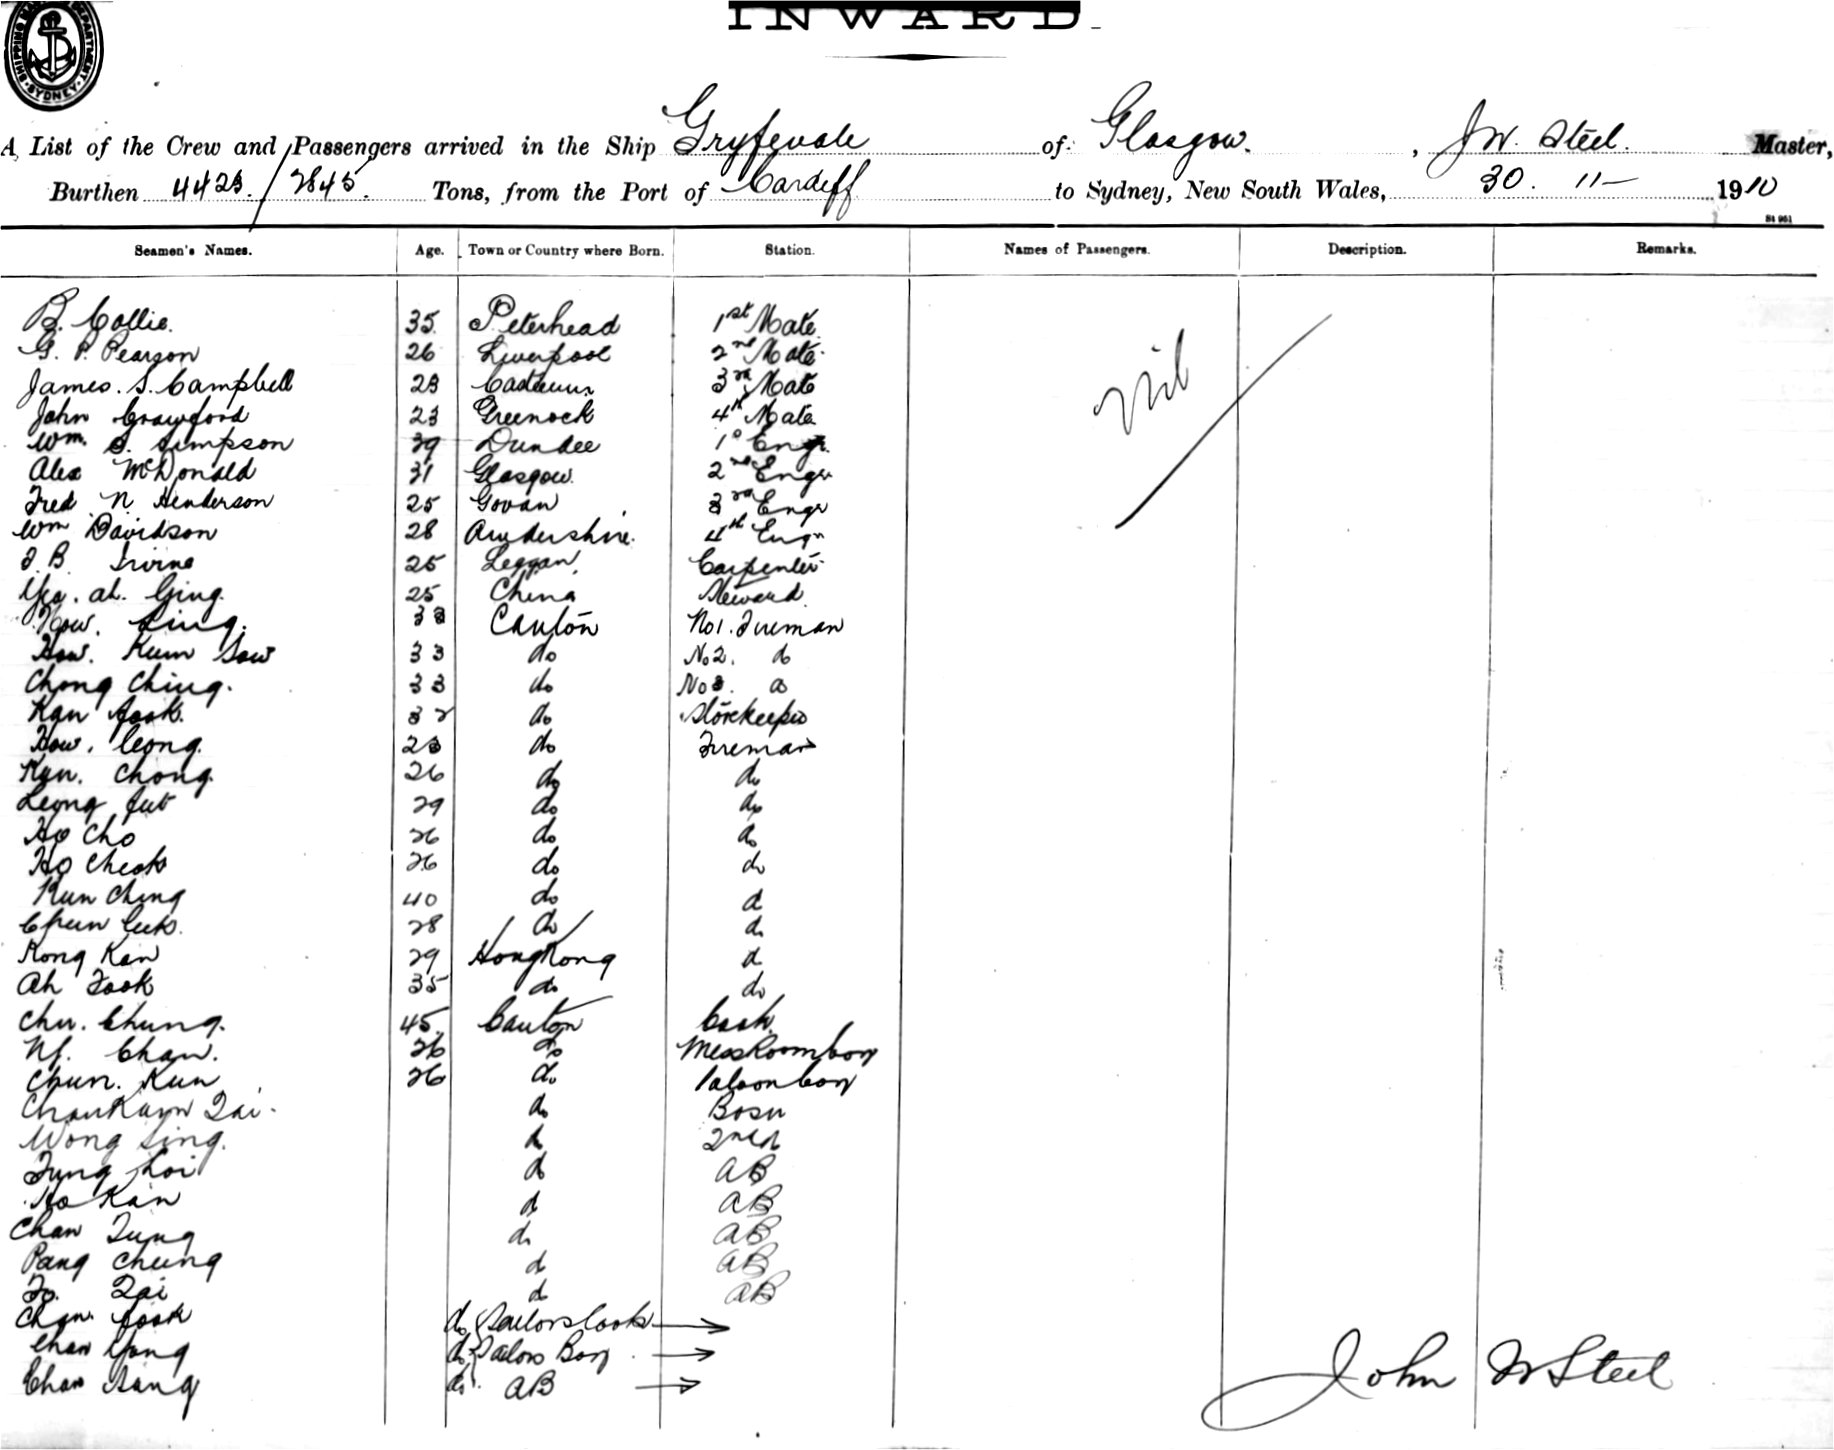 SHIPPING DEPARTMENT SYDNEY
INWARD.
A List of the Crew and Passengers arrived in the Ship Gryfevale of Glasgow. , J W. Steel. Master,
Burthen 4423. / 2845. Tons, from the Port of Cardiff to Sydney, New South Wales, 30. 11 – 1910
St 951
Seamen's Names. Age. Town or Country where Born. Station. Names of Passengers. Description. Remarks.
B. Collie. 35 Peterhead 1st Mate
G. P. Pearson 26 Liverpool 2nd Mate
James. S. Campbell 23 3rd Mate
John Crawford 23 Greenock 4th Mate
Wm. S. Simpson 39 Dundee 1st Engr.
Alex McDonald 31 Glasgow. 2nd Engr
Fred N. Henderson 25 Govan 3rd Engr
Wm Davidson 28 4th Engr
J. B. Irvine 25 Carpenter
ah. Ging. 25 China Steward
How. Ling. 33 Canton No1. Fireman
How. Kum Sow 33 do No2. do
Chong Ching. 33 do No3. do
Kan fook. 32 do Storekeeper
How. Ceong. 23 do Fireman
Kan. Chong. 26 do do
Leong fut 29 do do
Ho Cho 26 do do
Ho Cheok 26 do do
Kun Ching 40 do do
Chun Cuk. 28 do do
Kong Kan 29 HongKong do
Ah Fook 35 do do
Chu. Chung. 45. Canton Cook
Ng. Chan. 26 do MessRoomboy
Chun. Kun 26 do Saloonboy
ChanKam Tai. do Bosn
Wong Sing. do 2nd do
Fung Loi do AB
Ho Kan do AB
Chan Tung do AB
Pang Cheung do AB
Fo. Tai do AB
Chan. fook do Sailors Cook
Chan Yong do Sailors Boy
Chan Sang do. AB
nil
John W Steel